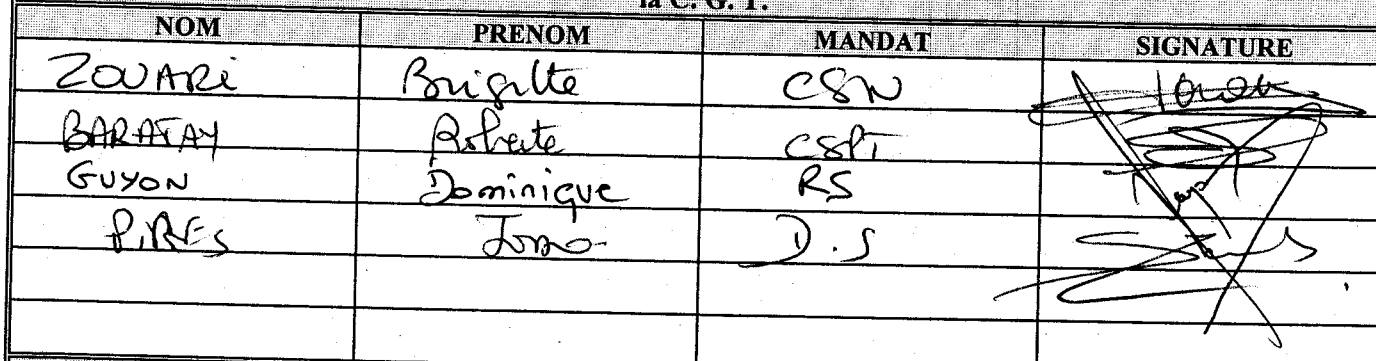 la C. G. T.
NOM PRENOM MANDAT SIGNATURE
ZOUARi Brigitte CSN
BARATAY Roberte CSPT
GUYON Dominique RS
PIRES D.S